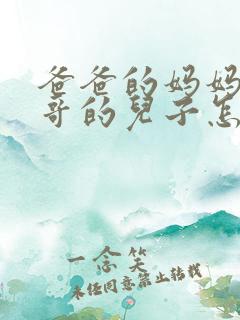 爸爸的妈妈
哥的儿子怎
一念笑
未经同意禁止转载